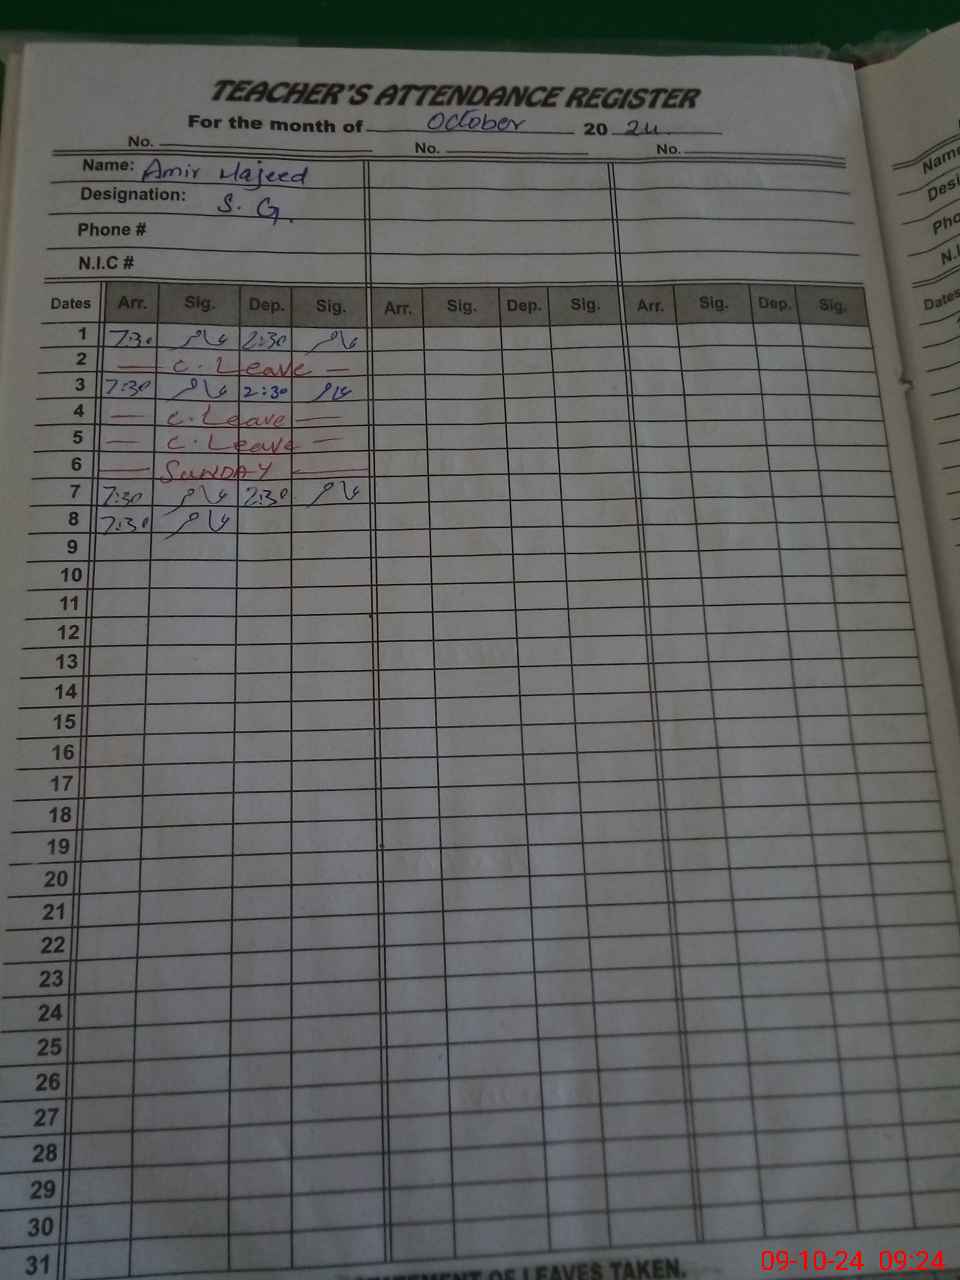 TEACHER'S ATTENDANCE REGISTER
For the month of October 20 24
No. No. No.
Name: Amir Majeed
Designation: S. G.
Phone #
N.I.C #
Dates Arr. Sig. Dep. Sig. Arr. Sig. Dep. Sig. Arr. Sig. Dep. Sig.
1 7:30 عامر 2:30 عامر
2 — C. Leave —
3 7:30 عامر 2:30 عامر
4 — C. Leave —
5 — C. Leave —
6 — SUNDAY —
7 7:30 عامر 2:30 عامر
8 7:30 عامر
9
10
11
12
13
14
15
16
17
18
19
20
21
22
23
24
25
26
27
28
29
30
31
OF LEAVES TAKEN.
Name
Desi
Pho
N.I
Dates
09-10-24 09:24